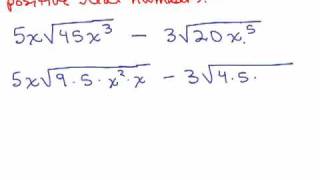 positive real numbers.
5x√45x³ − 3√20x⁵
5x√9·5·x²·x − 3√4·5·